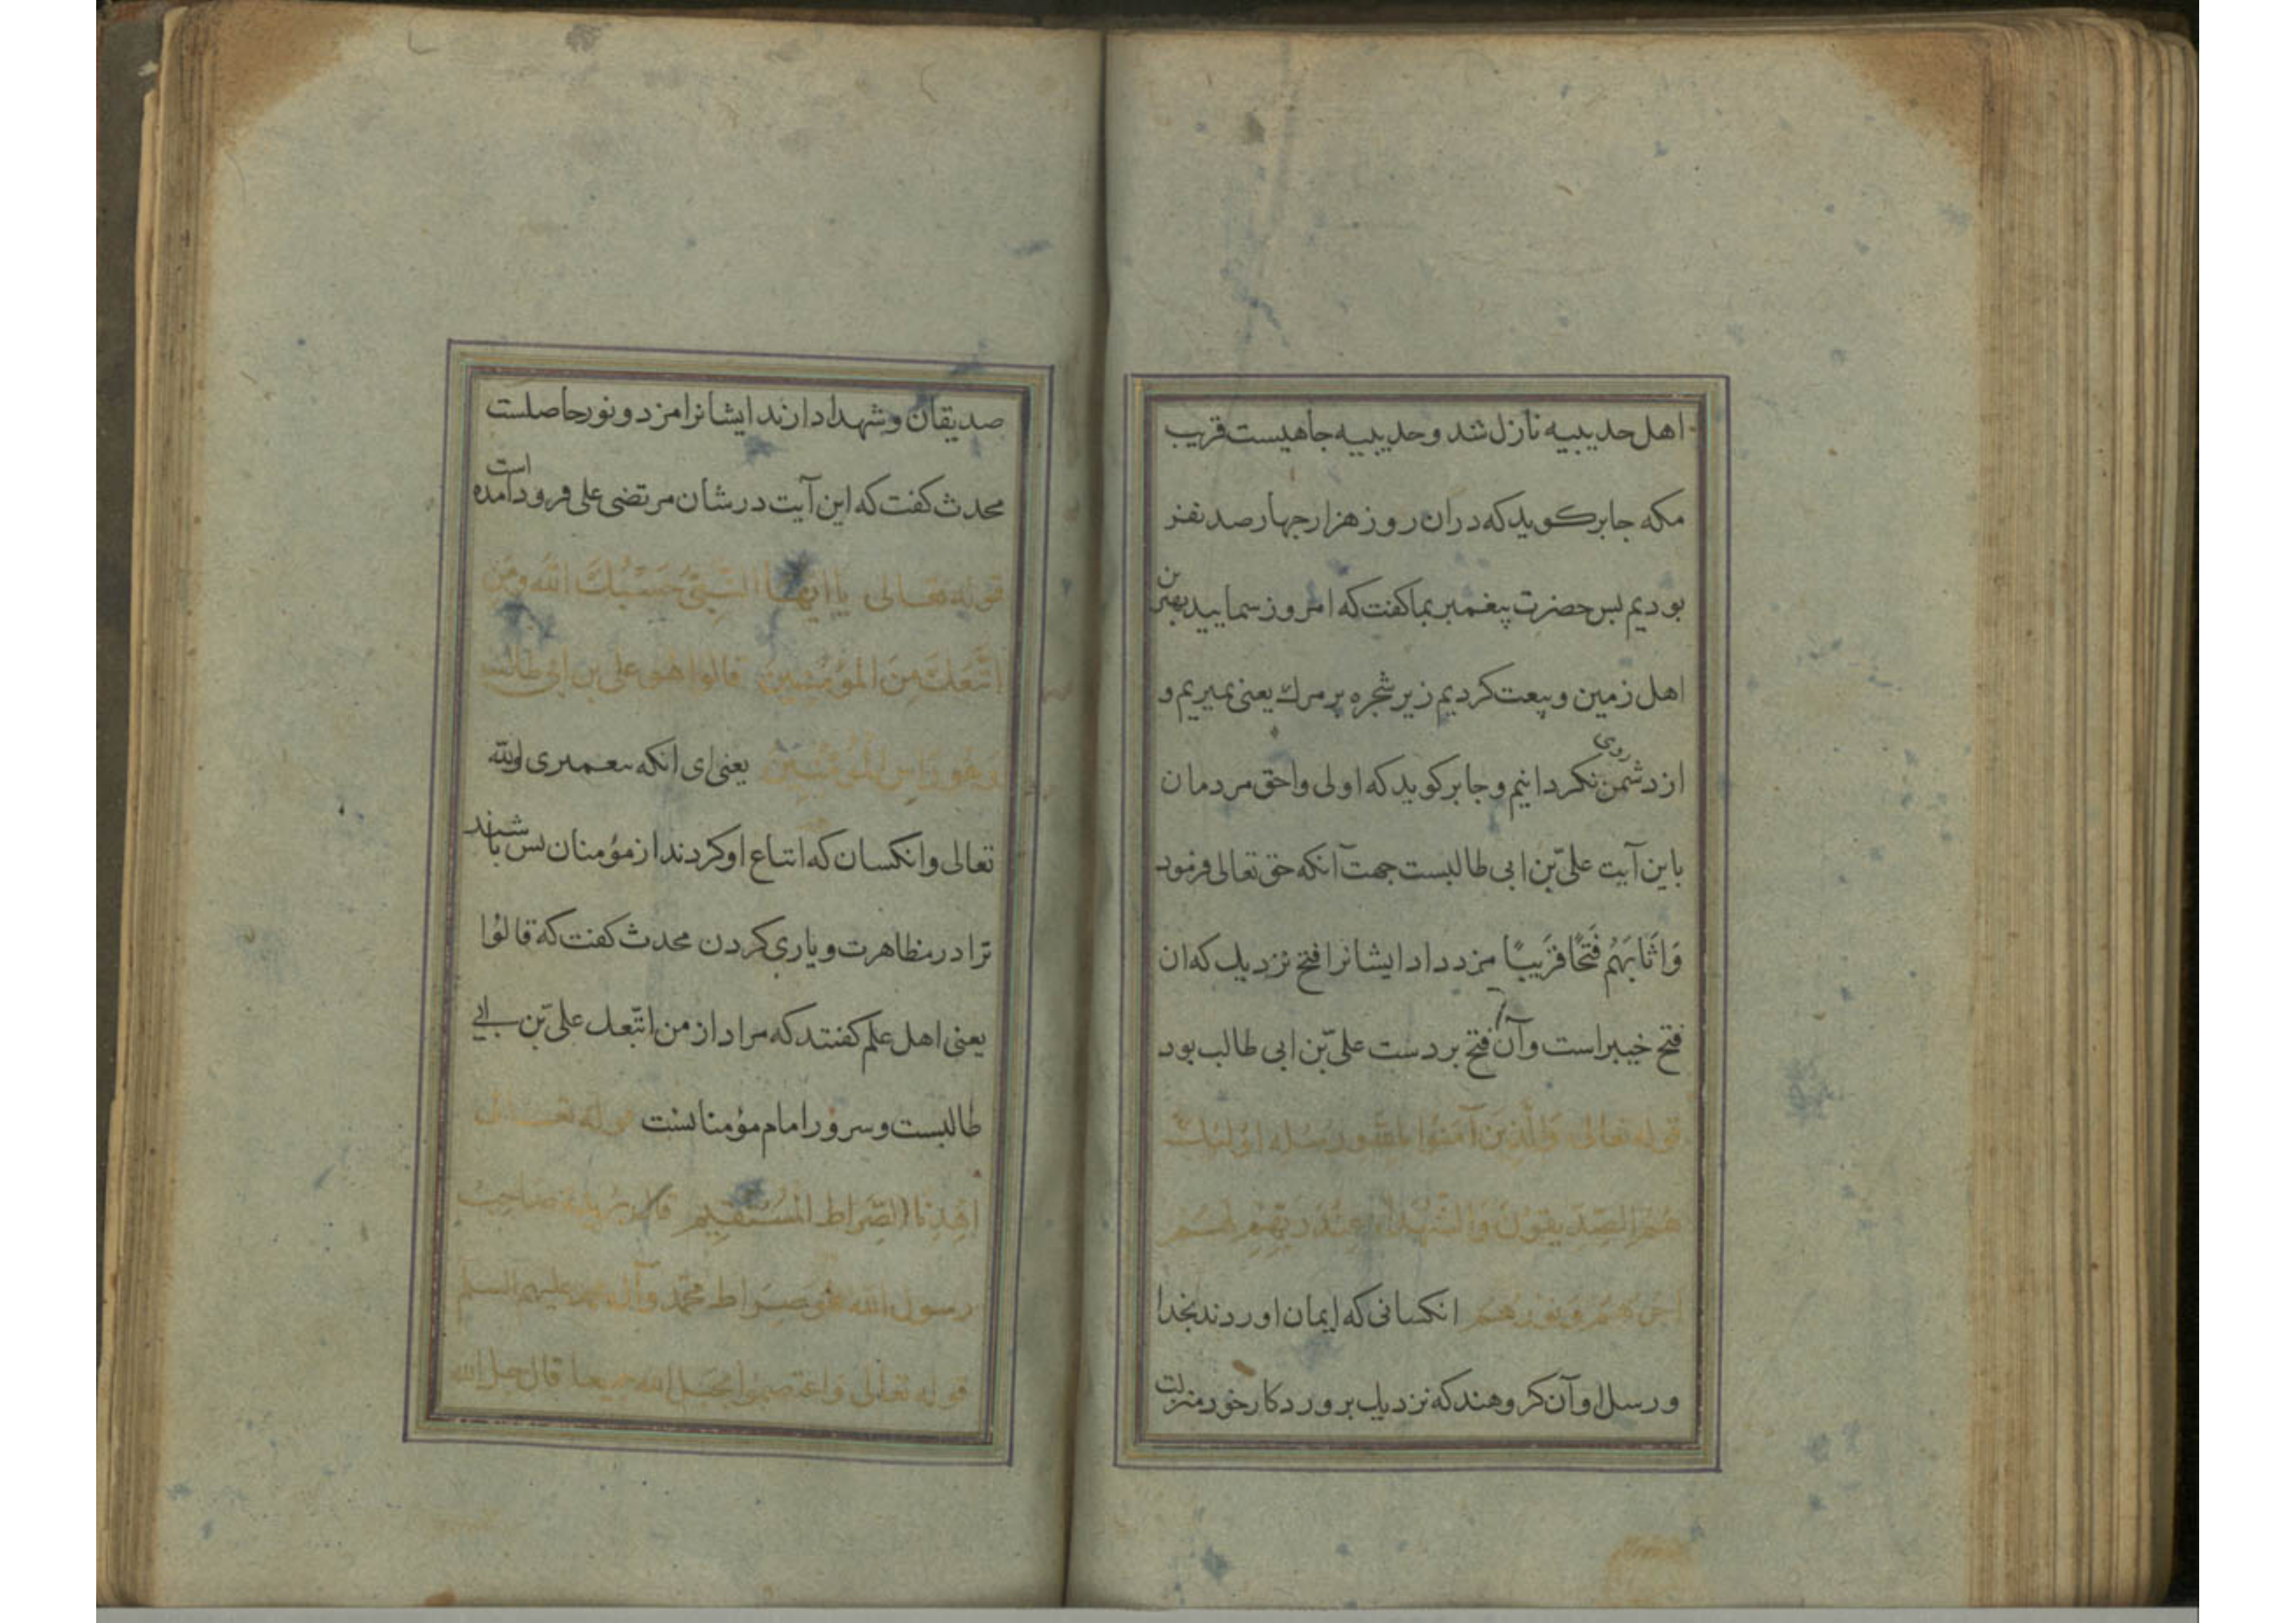 اهل حدیبیه نازل شد و حدیبیه جاهیست قریب
مکه جابر کوید که دران روز هزار جهار صد نفر
بودیم بس حضرت پیغمبر بما کفت که امروز شمایید بهترین
اهل زمین و بیعت کردیم زیر شجره بر مرك یعنی بمیریم و
از دشمن روی نکردانیم و جابر کوید که اولی و احق مردمان
باین آیت علیّ بن ابی طالبست جهت آنکه حق تعالی فرمود
وَاَثَابَهُمْ فَتْحًا قَرِیبًا مزد داد ایشانرا فتح نزدیك که ان
فتح خیبر است و آن فتح بر دست علیّ بن ابی طالب بود
قوله تعالی وَالَّذِینَ آمَنُوا بالله ورسله اولئِكَ
هُمُ الصِّدِّیقُونَ وَالشُّهَدَآءُ عِنْدَ رَبِّهِمْ لَهُمْ
اجرهُمْ وَنورُهُمْ انکسانی که ایمان اوردند بخدا
و رسل او آن کروهند که نزدیك بروردکار خود منزلت
صدیقان و شهدا دارند ایشانرا مزد و نور حاصلست
محدث کفت که این آیت در شان مرتضی علی فرود آمده است
قوله تعالی یا ایّها النَّبِیُّ حَسْبُكَ اللّه وَمَن
اتَّبَعَكَ مِنَ المؤمِنِینَ قالوا هو علی بن ابی طالب
وَهُوَ رَاس المُؤمنِینَ یعنی ای انکه بیغمبری و الله
تعالی و انکسان که اتباع او کردند از مؤمنان بس باشند
ترا در مظاهرت و یاری کردن محدث کفت که قالُوا
یعنی اهل علم کفتند که مراد از من اتّبعك علیّ بن ابی
طالبست و سرور امام مؤمنانست قوله تعـالی
اهْدِنَا الصِّرَاط الْمُسْتَقِیم قال بریدة صَاحِبُ
رسول الله هو صِرَاط محمّد وآل محمد علیهم السلم
قوله تعالی واعتصموا بحبل الله جمیعا قال حبل الله